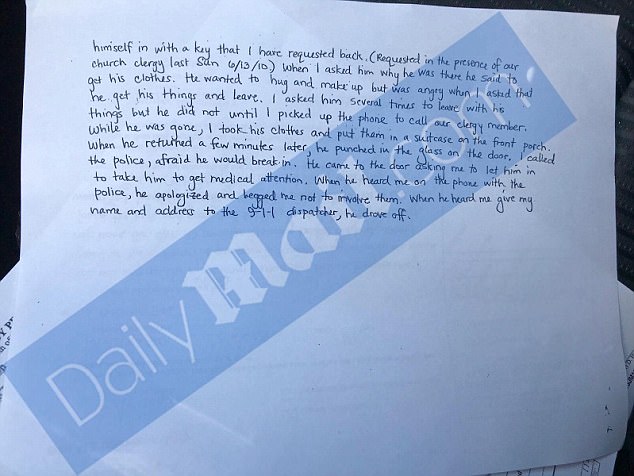 himself in with a key that I have requested back. (Requested in the presence of our
church clergy last Sun 6/13/10) When I asked him why he was there he said to
get his clothes. He wanted to hug and make up but was angry when I asked that
he get his things and leave. I asked him several times to leave with his
things but he did not until I picked up the phone to call our clergy member.
While he was gone, I took his clothes and put them in a suitcase on the front porch.
When he returned a few minutes later, he punched in the glass on the door. I called
the police, afraid he would break in. He came to the door asking me to let him in
to take him to get medical attention. When he heard me on the phone with the
police, he apologized and begged me not to involve them. When he heard me give my
name and address to the 9-1-1 dispatcher, he drove off.
Daily Mail.com